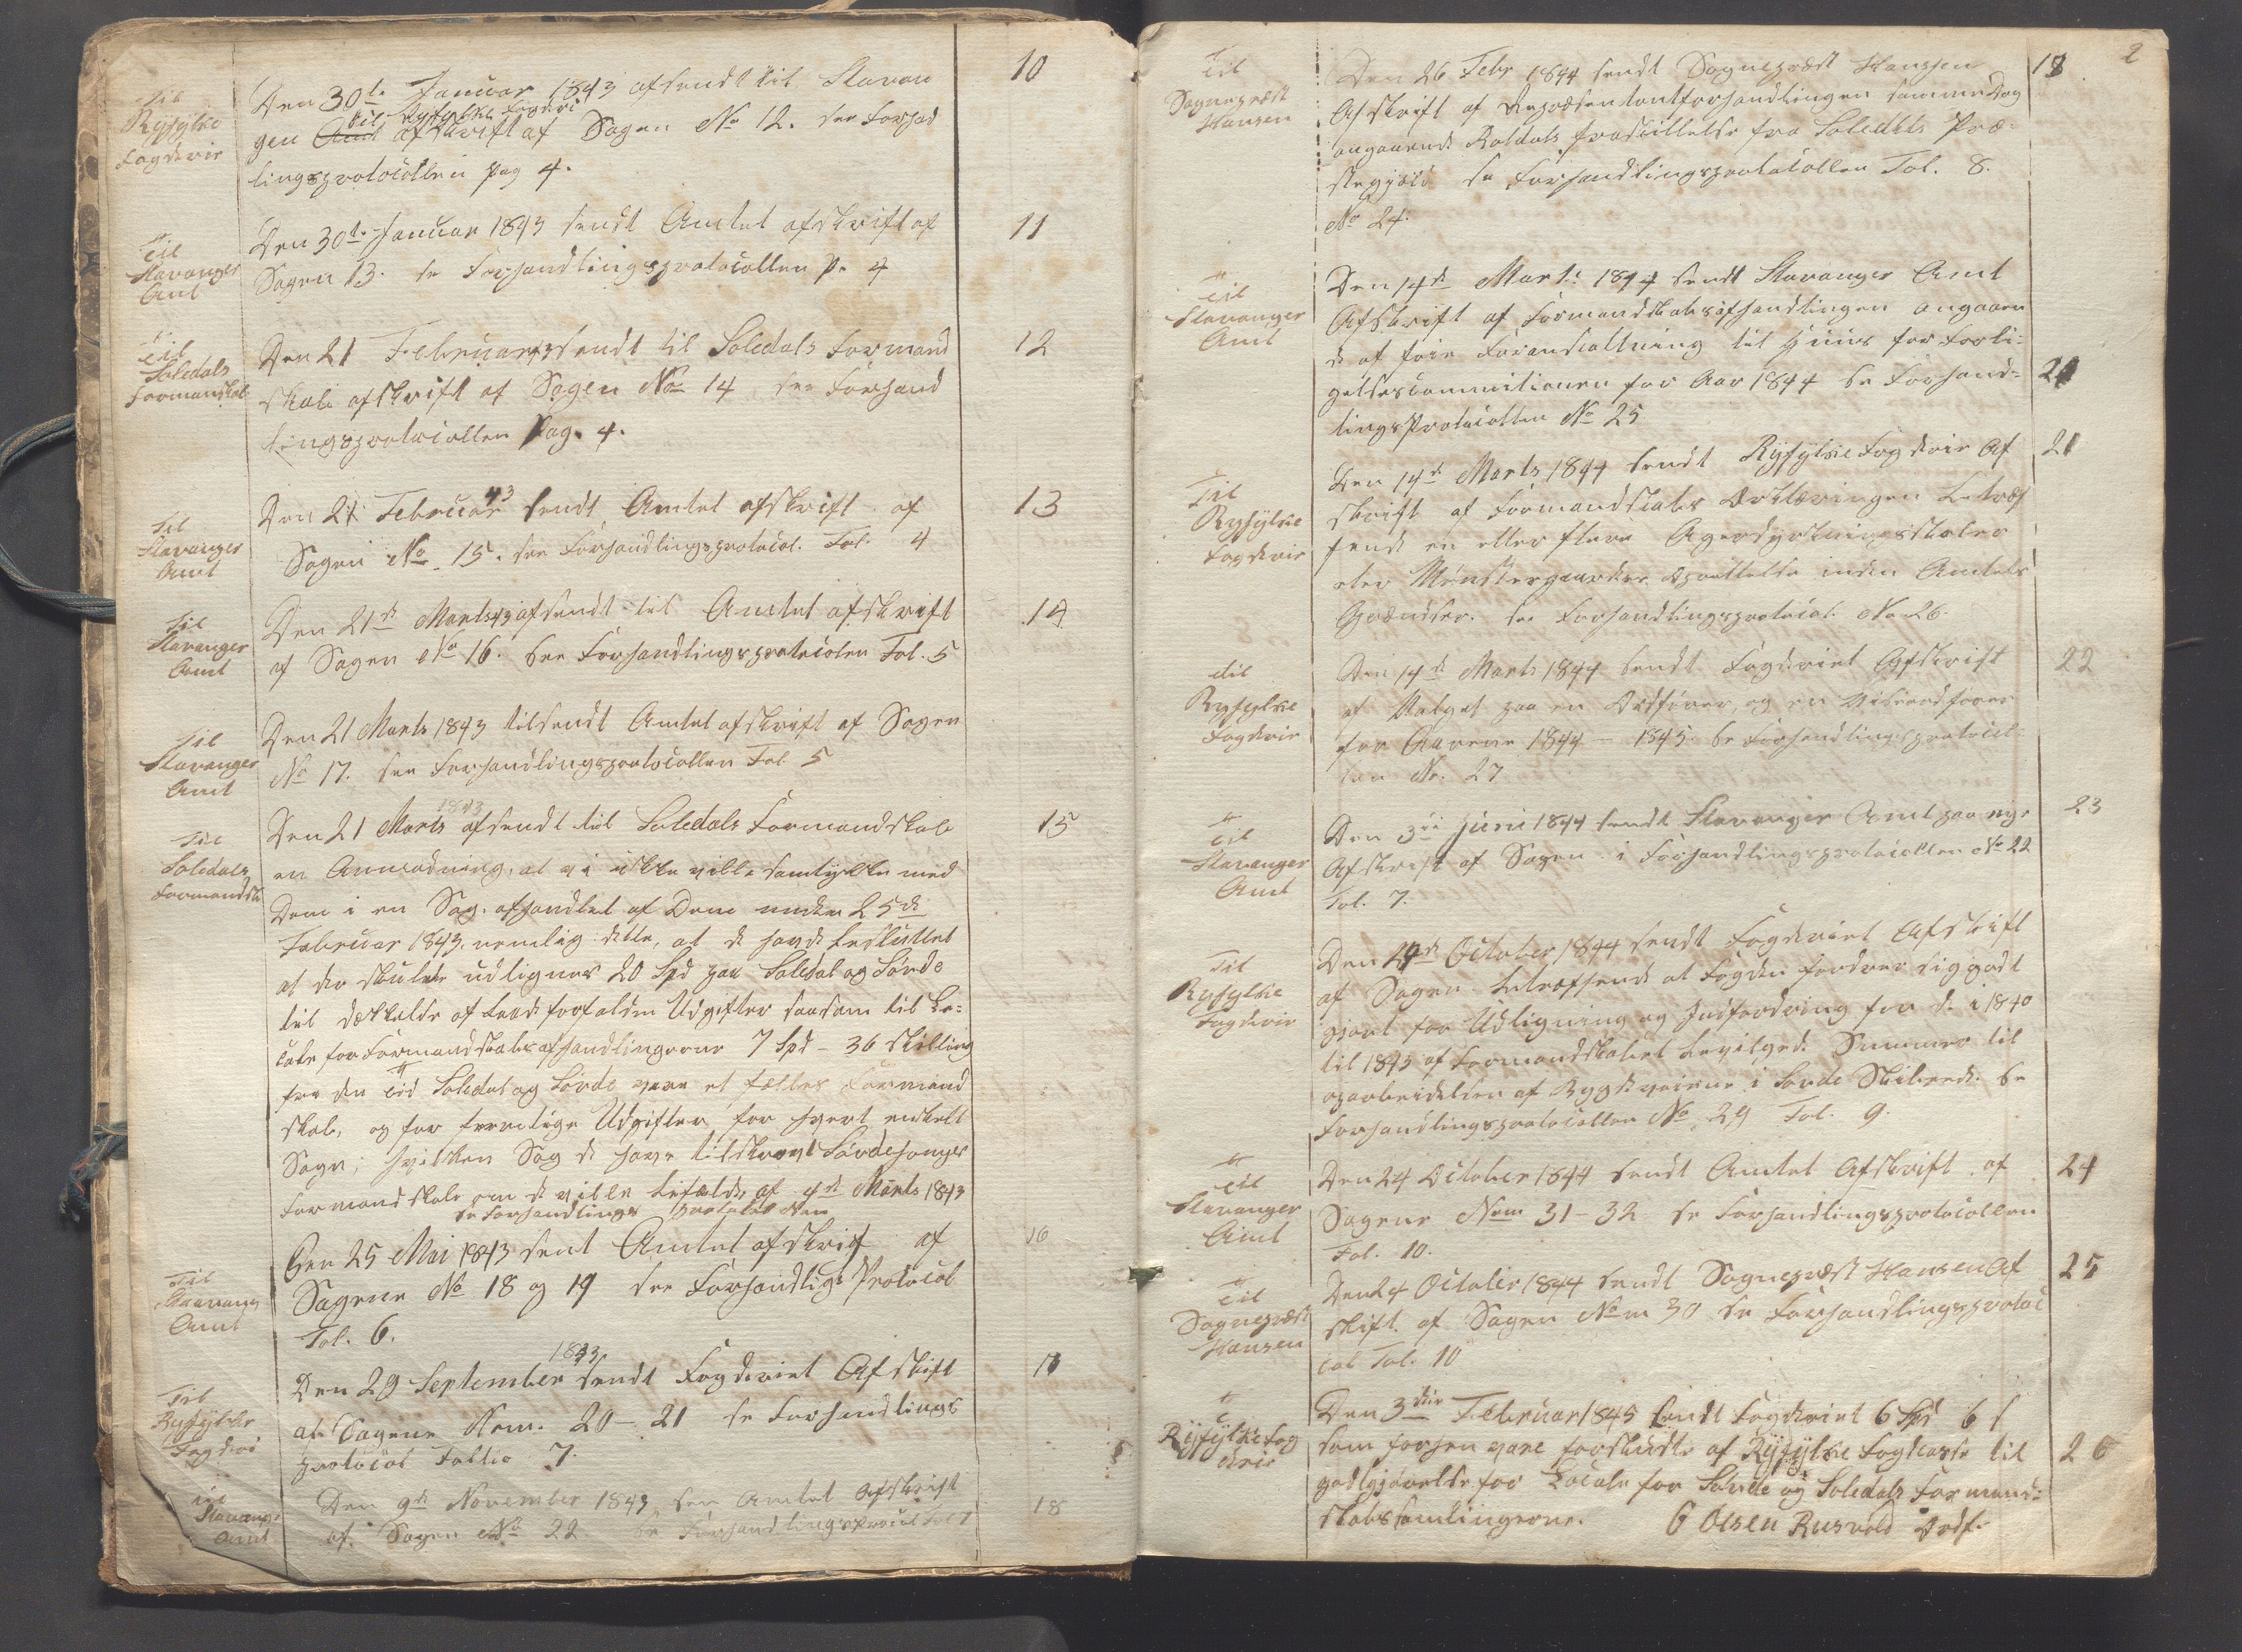 Til
Ryfylke
Fogderie
Den 30te Januar 1843 afsendt til Stavan
til Ryfylke Fogderi
gen Amt afskrift af Sagen No 12. see Forhad
lingsprotocollen pag 4.
10
Til
Stavanger
Amt
Den 30te Januar 1843 sendt Amtet afskrift af
Sagen 13. se Forhandlingsprotocollen p. 4
11
Til
Soledals
Formanskab
Den 21 Februar 43 sendt til Soledals Formand
skab afskrift af Sagen No 14 see Forhand
lingsprotocollen Pag. 4.
12
Til
Stavanger
Amt
Den 21 Februar 43 sendt Amtet afskrift af
Sagen No 15. see Forhandlingsprotocol. Fol. 4
13
Til
Stavanger
Amt
Den 21de Marts 43 afsendt til Amtet afskrift
af Sagen No 16. see Forhandlingsprotocolen Fol. 5
14
Til
Stavanger
Amt
Den 21 Marts 1843 tilsendt Amtet afskrift af Sagen
No 17. see Forhandlingsprotocollen Fol 5
Til
Soledals
Formandsk
1843
Den 21 Marts afsendt til Soledals Formandskab
en Anmodning, at vi ikke ville samtykke med
Dem i en Sag, afhandlet af Dem under 25de
Februar 1843, nemlig dette, at de havde besluttet
at der skulde udlignes 20 Spd paa Soledal og Sövde
til dækkelse af havde forfalden Udgifter saasom til Lo-
cale for Formandskabsafhandlingerne 7 Spd - 36 skilling
fra den tid Soledal og Sövde vare et fælles Formand
skab, og for fremtige Udgifter for hvert enkelt
Sogn; hvilken Sag de have tilskrevet Sövdehongs
Formandskab om de ville bifalde af 4de Marts 1843
se Forhandlings protocollen
15
Til
Stavang
Amt
Den 25 Mai 1843 sent Amtet afskrift af
Sagene No 18 og 19 see Forhandligs Protocol
Fol. 6.
16
Til
Ryfylke
Fogderi
1843.
Den 29 September sendt Fogderiet Afskift
af Sagene Nom. 20 - 21 se Forhandlings
protocol Follio 7.
17
Til
Stavang.
Amt
Den 9de November 1843 sen Amtet Afskrift
af Sagen No 22 se Forhandlingsprocol Fol 7
18
2
Til
Sognepræst
Hansen
Den 26 Febr 1844 sendt Sognepræst Hanssen
Afskrift af Repræsentantforhandlingen samme Dag
angaaende Roldals fraskillelse fra Soledals Præ-
stegjæld se Forhandlingsprotocollen Fol. 8.
No 24.
19
Til
Stavanger
Amt
Den 14de Marts 1844 sendt Stavanger Amt
Afskrift af Formandskabsafhandlingen angaaen
de af foie Foranstaltning til Huus for Forli-
gelsescommitionen for Aar 1844 se Forhand-
lingsProtocollen No 25
20
Til
Ryfylke
Fogderie
Den 14de Marts 1844 sendt Ryfylke Fogderie Af
skrift af Formandskabs Erklæringen betræf
fende en eller flere Agerdyrkningsskoler
eler Mönstergaardes oprettelse inden Amtets
Grændser. see Forhandlingsprotocol. No 26.
21
til
Ryfylke
Fogderie
Den 14de Marts 1844 sendt Fogderiet Afskrift
af Valget paa en Ordförer, og en Viseordforer
for Aarene 1844 - 1845 se Forhandlingsprotocol-
len No. 27
22
Til
Stavanger
Amt
Den 3die Juni 1844 sendt Stavanger Amt paa nye
Afskrift af Sagen i Forhandlingsprotocollen No 22
Fol. 7.
23
Til
Ryfylke
Fogderie
Den 24de October 1844 sendt Fogderiet Afskrift
af Sagen betræffende at Fogden fordrer sig godt
gjort for Udligning og Indfordring for de i 1840
til 1843 af Formandskabet bevilgede Summer til
oparbeidelsen af Bygdeveiene i Sövde Skibrede. Se
Forhandlingsprotocollen No 29 Fol. 9.
Til
Stavanger
Amt
Den 24 October 1844 sendt Amtet Afskrift af
Sagene Nom 31-32 se Forhandlingsprotocollen
Fol. 10.
24
Til
Sognepræst
Hansen
Den 24 October 1844 sendt Sognepræst Hansen Af
skift. af Sagen Nom 30 se Forhandlingsprotoc
col Fol. 10
25
Til
Ryfylke Fog
derie
Den 3die Februar 1845 sendt Fogderiet 6 Spd 6 s
som forhen vare forskudte af Ryfylke Fogkasse til
godtgjörelse for Locale for Sövde og Soledals Formand-
skabssamlingerne. G Olsen Rusvold Ordf.
26